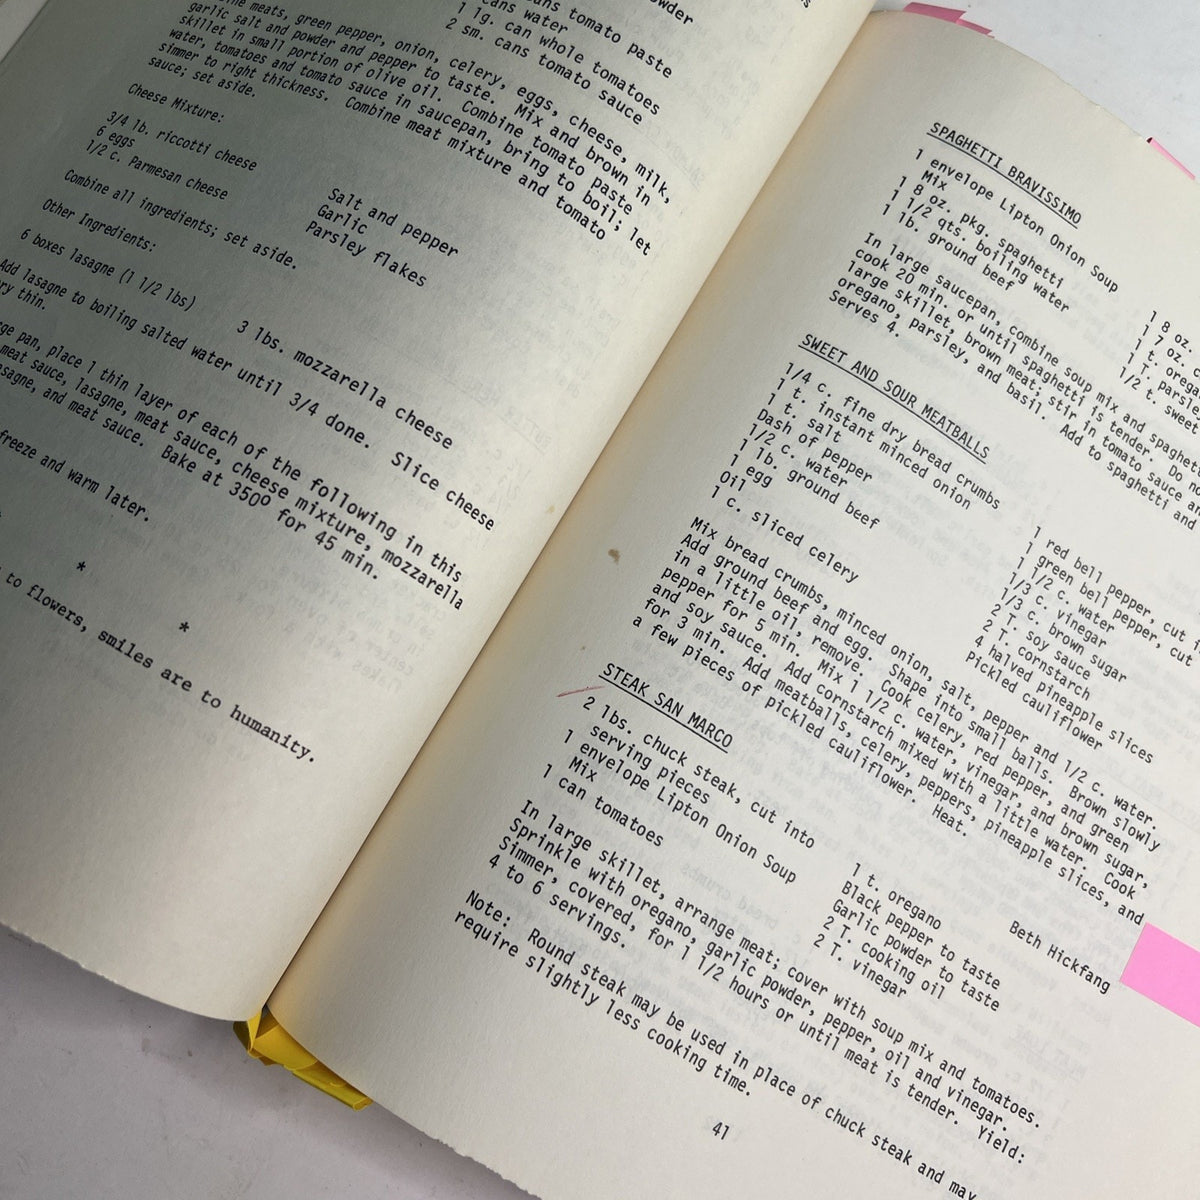 cans tomato paste
cans water
1 lg. can whole tomatoes
2 sm. cans tomato sauce
meats, green pepper, onion, celery, eggs, cheese, milk,
garlic salt and powder and pepper to taste. Mix and brown in
skillet in small portion of olive oil. Combine tomato paste,
water, tomatoes and tomato sauce in saucepan, bring to boil; let
simmer to right thickness. Combine meat mixture and tomato
sauce; set aside.
Cheese Mixture:
3/4 lb. riccotti cheese
6 eggs
1/2 c. Parmesan cheese
Salt and pepper
Garlic
Parsley flakes
Combine all ingredients; set aside.
Other Ingredients:
6 boxes lasagne (1 1/2 lbs)
3 lbs. mozzarella cheese
Add lasagne to boiling salted water until 3/4 done. Slice cheese
thin.
pan, place 1 thin layer of each of the following in this
meat sauce, lasagne, meat sauce, cheese mixture, mozzarella
and meat sauce. Bake at 350º for 45 min.
freeze and warm later.
* *
to flowers, smiles are to humanity.
SPAGHETTI BRAVISSIMO
1 envelope Lipton Onion Soup
Mix
1 8 oz. pkg. spaghetti
1 1/2 qts. boiling water
1 lb. ground beef
1 8 oz.
1 7 oz.
1 t.
1 T.
1/2 t. sweet
In large saucepan, combine soup mix and
cook 20 min. or until spaghetti is tender. Do
large skillet, brown meat; stir in tomato sauce
oregano, parsley, and basil. Add to spaghetti and
Serves 4.
SWEET AND SOUR MEATBALLS
1/4 c. fine dry bread crumbs
1 t. instant minced onion
1 t. salt
Dash of pepper
1/2 c. water
1 lb. ground beef
1 egg
Oil
1 c. sliced celery
1 red bell pepper, cut
1 green bell pepper, cut
1 1/2 c. water
1/3 c. vinegar
1/3 c. brown sugar
2 T. soy sauce
2 T. cornstarch
4 halved pineapple slices
Pickled cauliflower
Mix bread crumbs, minced onion, salt, pepper and 1/2 c. water.
Add ground beef and egg. Shape into small balls. Brown slowly
in a little oil, remove. Cook celery, red pepper, and green
pepper for 5 min. Mix 1 1/2 c. water, vinegar, and brown sugar,
and soy sauce. Add cornstarch mixed with a little water. Cook
for 3 min. Add meatballs, celery, peppers, pineapple slices, and
a few pieces of pickled cauliflower. Heat.
Beth Hickfang
STEAK SAN MARCO
2 lbs. chuck steak, cut into
serving pieces
1 envelope Lipton Onion Soup
Mix
1 can tomatoes
1 t. oregano
Black pepper to taste
Garlic powder to taste
2 T. cooking oil
2 T. vinegar
In large skillet, arrange meat; cover with soup mix and tomatoes.
Sprinkle with oregano, garlic powder, pepper, oil and vinegar.
Simmer, covered, for 1 1/2 hours or until meat is tender. Yield:
4 to 6 servings.
Note: Round steak may be used in place of chuck steak and may
require slightly less cooking time.
41